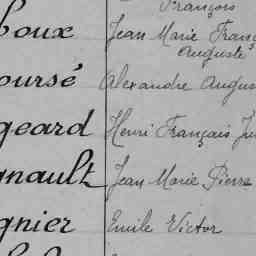 François
boux Jean Marie Franç
Auguste
oursé Alexandre Augus
geard Henri François Ju
gnault Jean Marie Pierre
gnier Emile Victor